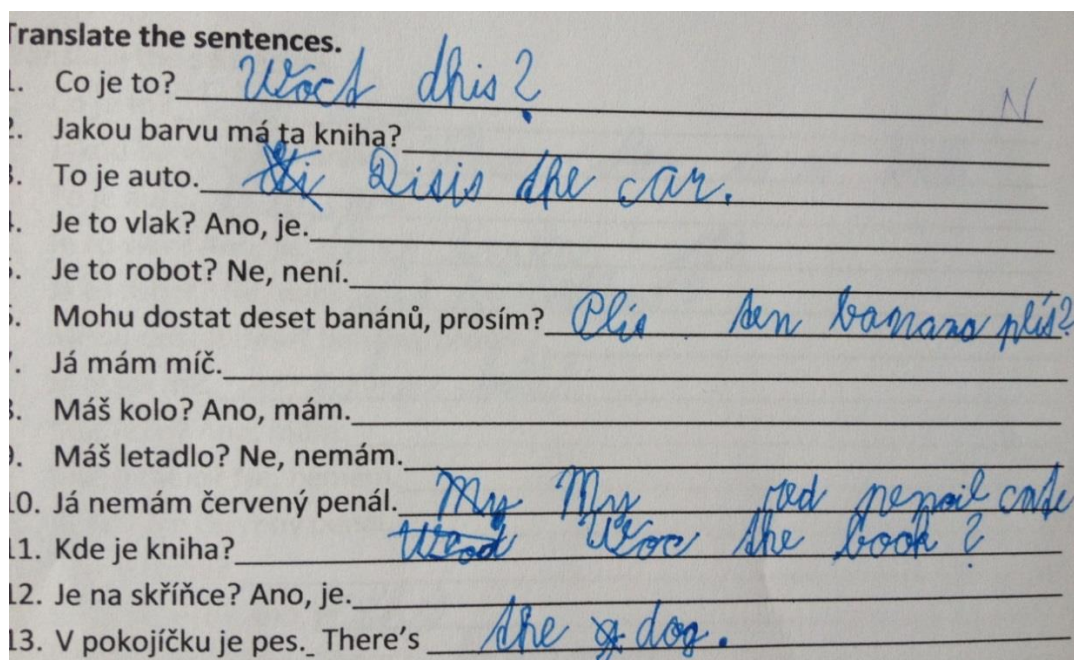 Translate the sentences.
1. Co je to? Woct dhis?
N
2. Jakou barvu má ta kniha?
3. To je auto. Disis dhe car.
4. Je to vlak? Ano, je.
5. Je to robot? Ne, není.
6. Mohu dostat deset banánů, prosím? Plis ten banana plís?
7. Já mám míč.
8. Máš kolo? Ano, mám.
9. Máš letadlo? Ne, nemám.
10. Já nemám červený penál. My My red pencil case
11. Kde je kniha? the book?
12. Je na skříňce? Ano, je.
13. V pokojíčku je pes. There's the dog.